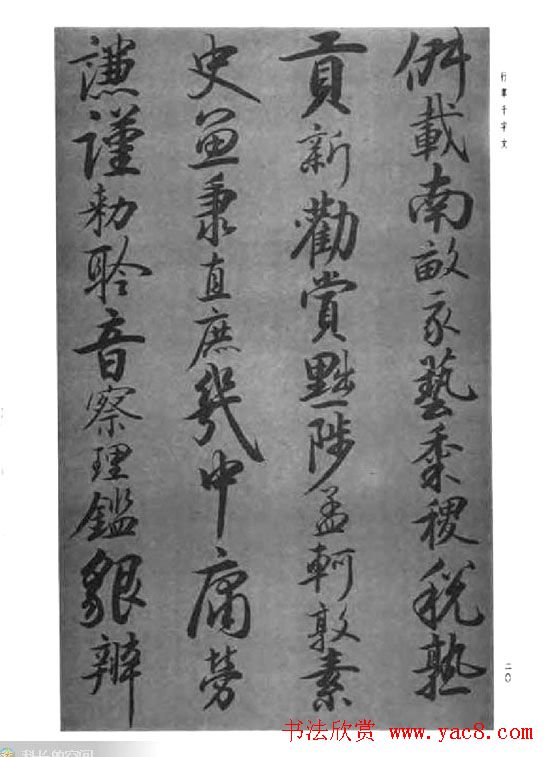 行草千字文
俶載南畝我藝黍稷稅熟
貢新勸賞黜陟孟軻敦素
史魚秉直庶幾中庸勞
謙謹勅聆音察理鑑貌辨
二〇
书法欣赏 www.yac8.com